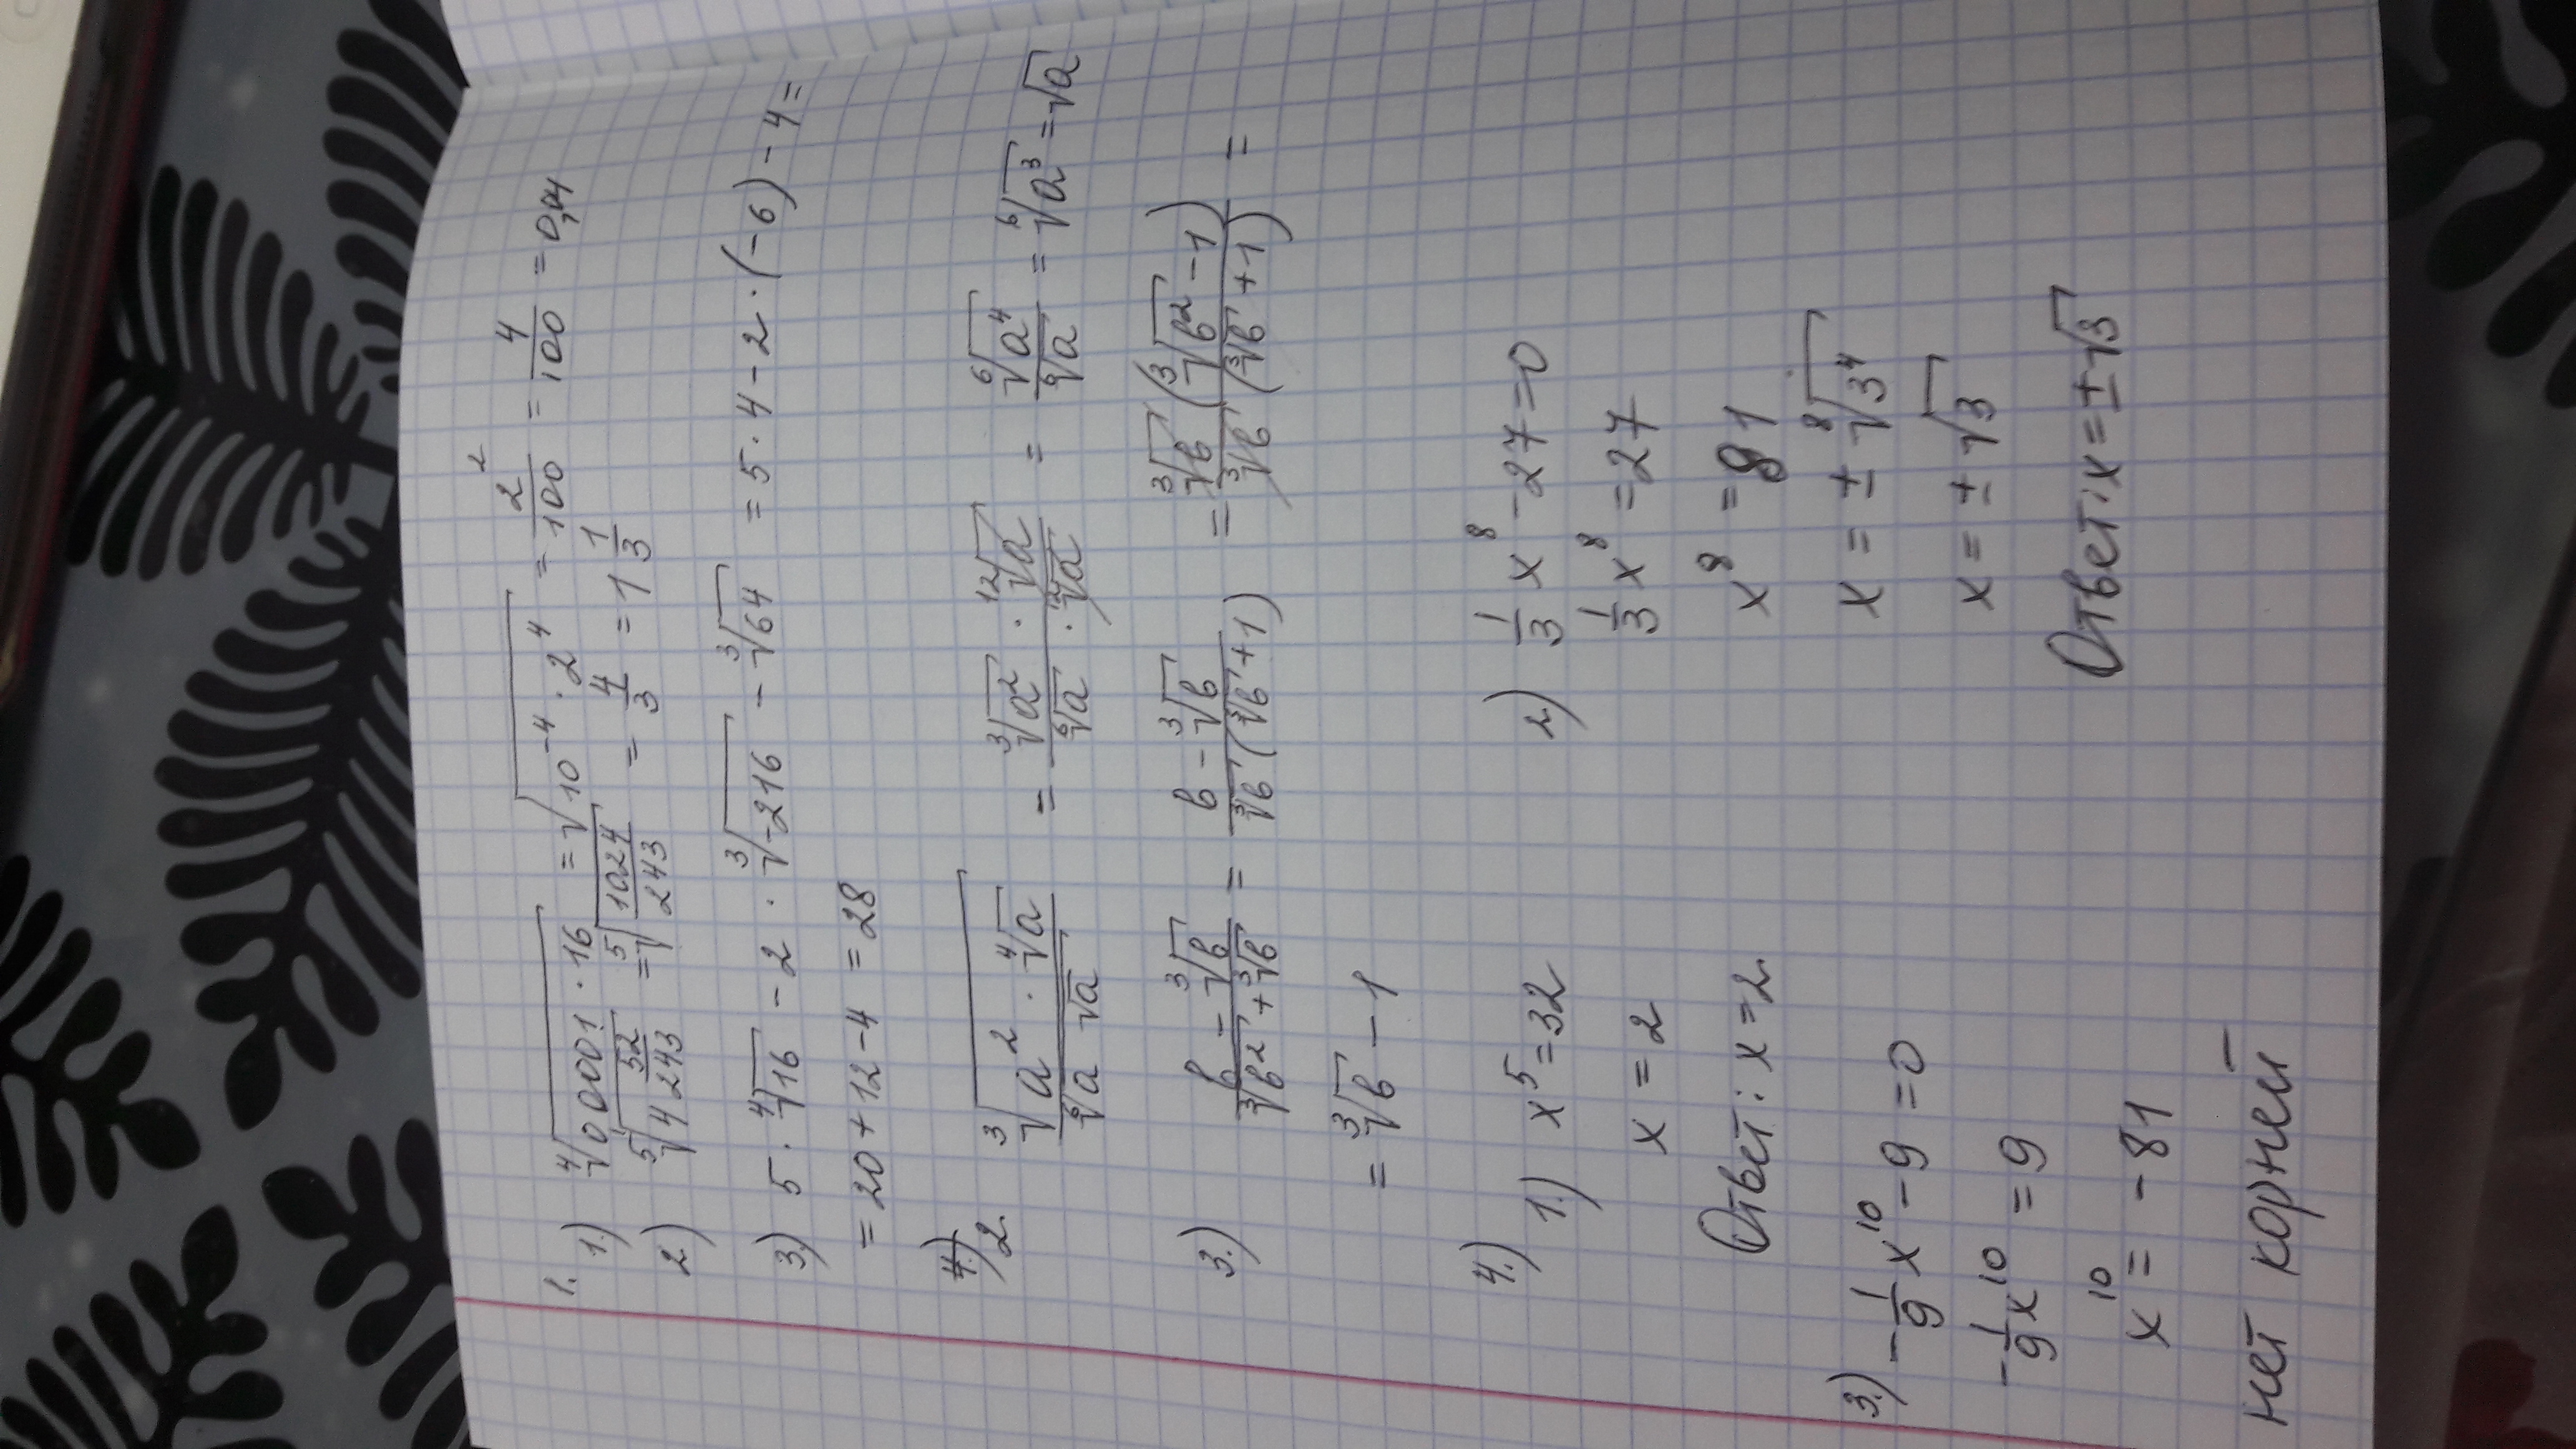 1. 1.) ⁴√(0,0001 · 16) = √(10⁻⁴ · 2⁴) = 2/100 ² = 4/100 = 0,04
2.) ⁵√(4 52/243) = ⁵√(1024/243) = 4/3 = 1 1/3
3.) 5 · ⁴√16 − 2 · ³√−216 − ³√64 = 5 · 4 − 2 · (−6) − 4 =
= 20 + 12 − 4 = 28
2. ³√(a² · ⁴√a) / (⁶√(a √a)) = (³√a² · ¹²√a) / (⁶√a · ¹²√a) = ⁶√a⁴ / ⁶√a = ⁶√a³ = √a
3.) (b − ³√b) / (³√b² + ³√b) = (b − ³√b) / (³√b (³√b + 1)) = (³√b (³√b² − 1)) / (³√b (³√b + 1)) =
= ³√b − 1
4.) 1.) x⁵ = 32
x = 2
Ответ: x = 2.
2.) 1/3 x⁸ − 27 = 0
1/3 x⁸ = 27
x⁸ = 81
x = ± ⁸√3⁴
x = ± √3
Ответ: x = ± √3
3.) − 1/9 x¹⁰ − 9 = 0
− 1/9 x¹⁰ = 9
x¹⁰ = − 81
нет корней